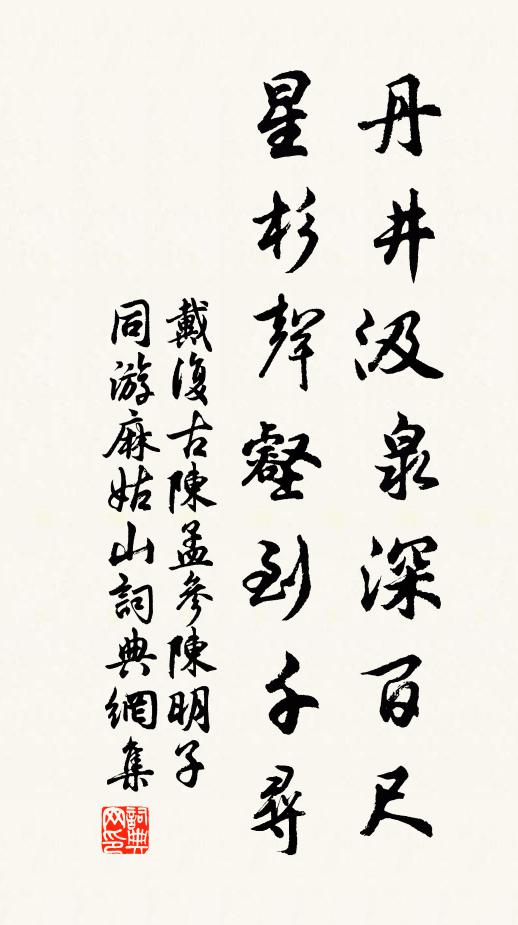 丹井汲泉深百尺
星杉聲壑到千尋
戴復古陳孟參陳明子
同游麻姑山詞典網集
詞典網印